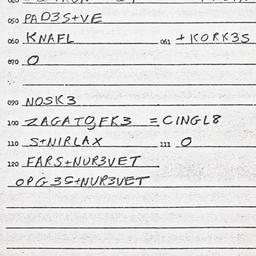 050 PAD3S+VE
060 KNAFL 061 +KORK3S
070 O
090 NOSK3
100 ZAGATOGFK3 = CINGL8
110 S+NIRLAX 111 O
120 FARS+NUR3VET
OPG3S+NUR3VET